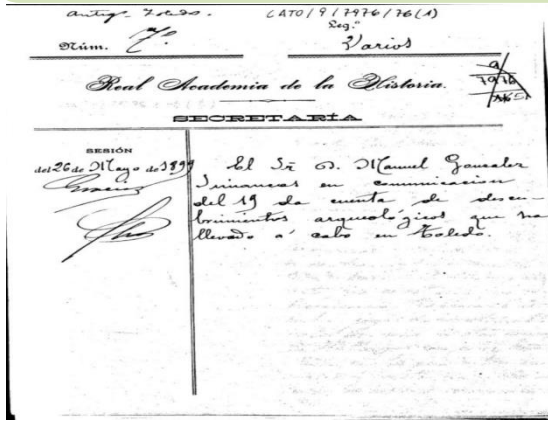 Antig. Toledo.
CATO/9/7976/76(1)
Leg.º
Núm. 7º
Varios
9/7976
Real Academia de la Historia.
SECRETARÍA
SESIÓN
del 26 de Mayo de 1899
El Sr. D. Manuel Gonzalez
Simancas en comunicacion
del 19 da cuenta de descu-
brimientos arqueológicos que ha
llevado á cabo en Toledo.